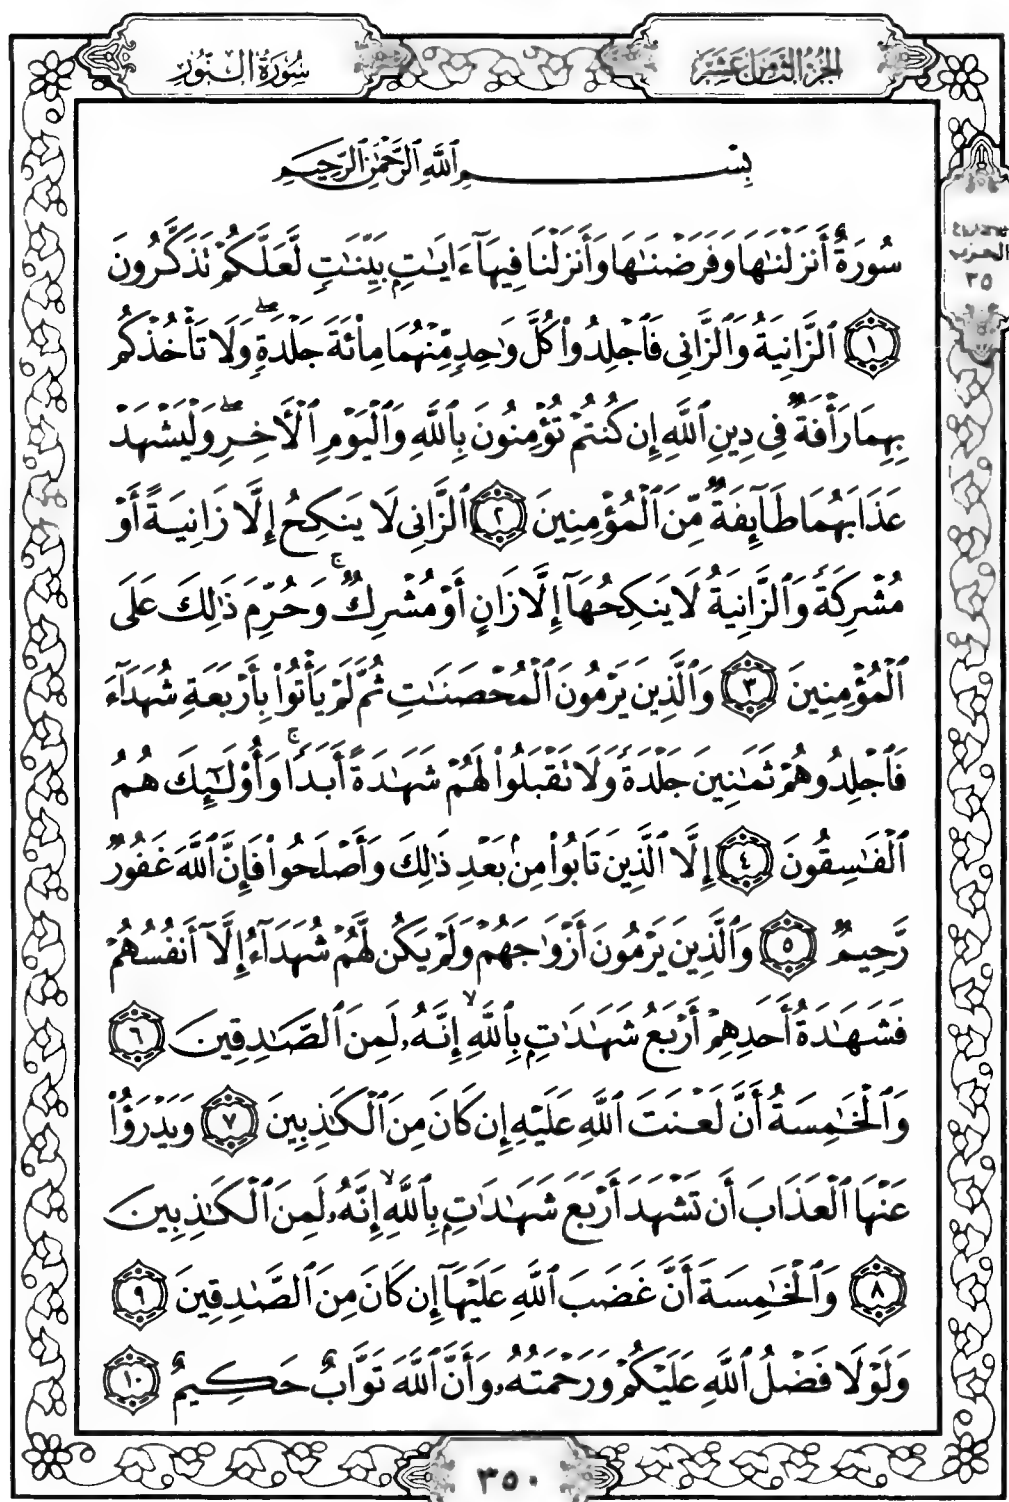 الجزء الثامن عشر
سورة النور
بِسْمِ ٱللَّهِ ٱلرَّحْمَٰنِ ٱلرَّحِيمِ
الحزب
٣٥
سُورَةٌ أَنزَلْنَٰهَا وَفَرَضْنَٰهَا وَأَنزَلْنَا فِيهَآ ءَايَٰتٍۭ بَيِّنَٰتٍ لَّعَلَّكُمْ تَذَكَّرُونَ
١ ٱلزَّانِيَةُ وَٱلزَّانِى فَٱجْلِدُوا۟ كُلَّ وَٰحِدٍ مِّنْهُمَا مِا۟ئَةَ جَلْدَةٍ ۖ وَلَا تَأْخُذْكُم
بِهِمَا رَأْفَةٌ فِى دِينِ ٱللَّهِ إِن كُنتُمْ تُؤْمِنُونَ بِٱللَّهِ وَٱلْيَوْمِ ٱلْأَخِرِ ۖ وَلْيَشْهَدْ
عَذَابَهُمَا طَآئِفَةٌ مِّنَ ٱلْمُؤْمِنِينَ ٢ ٱلزَّانِى لَا يَنكِحُ إِلَّا زَانِيَةً أَوْ
مُشْرِكَةً وَٱلزَّانِيَةُ لَا يَنكِحُهَآ إِلَّا زَانٍ أَوْ مُشْرِكٌ ۚ وَحُرِّمَ ذَٰلِكَ عَلَى
ٱلْمُؤْمِنِينَ ٣ وَٱلَّذِينَ يَرْمُونَ ٱلْمُحْصَنَٰتِ ثُمَّ لَمْ يَأْتُوا۟ بِأَرْبَعَةِ شُهَدَآءَ
فَٱجْلِدُوهُمْ ثَمَٰنِينَ جَلْدَةً وَلَا تَقْبَلُوا۟ لَهُمْ شَهَٰدَةً أَبَدًا ۚ وَأُو۟لَٰٓئِكَ هُمُ
ٱلْفَٰسِقُونَ ٤ إِلَّا ٱلَّذِينَ تَابُوا۟ مِنۢ بَعْدِ ذَٰلِكَ وَأَصْلَحُوا۟ فَإِنَّ ٱللَّهَ غَفُورٌ
رَّحِيمٌ ٥ وَٱلَّذِينَ يَرْمُونَ أَزْوَٰجَهُمْ وَلَمْ يَكُن لَّهُمْ شُهَدَآءُ إِلَّآ أَنفُسُهُمْ
فَشَهَٰدَةُ أَحَدِهِمْ أَرْبَعُ شَهَٰدَٰتٍۭ بِٱللَّهِ ۙ إِنَّهُۥ لَمِنَ ٱلصَّٰدِقِينَ ٦
وَٱلْخَٰمِسَةُ أَنَّ لَعْنَتَ ٱللَّهِ عَلَيْهِ إِن كَانَ مِنَ ٱلْكَٰذِبِينَ ٧ وَيَدْرَؤُا۟
عَنْهَا ٱلْعَذَابَ أَن تَشْهَدَ أَرْبَعَ شَهَٰدَٰتٍۭ بِٱللَّهِ ۙ إِنَّهُۥ لَمِنَ ٱلْكَٰذِبِينَ
٨ وَٱلْخَٰمِسَةَ أَنَّ غَضَبَ ٱللَّهِ عَلَيْهَآ إِن كَانَ مِنَ ٱلصَّٰدِقِينَ ٩
وَلَوْلَا فَضْلُ ٱللَّهِ عَلَيْكُمْ وَرَحْمَتُهُۥ وَأَنَّ ٱللَّهَ تَوَّابٌ حَكِيمٌ ١٠
٣٥٠